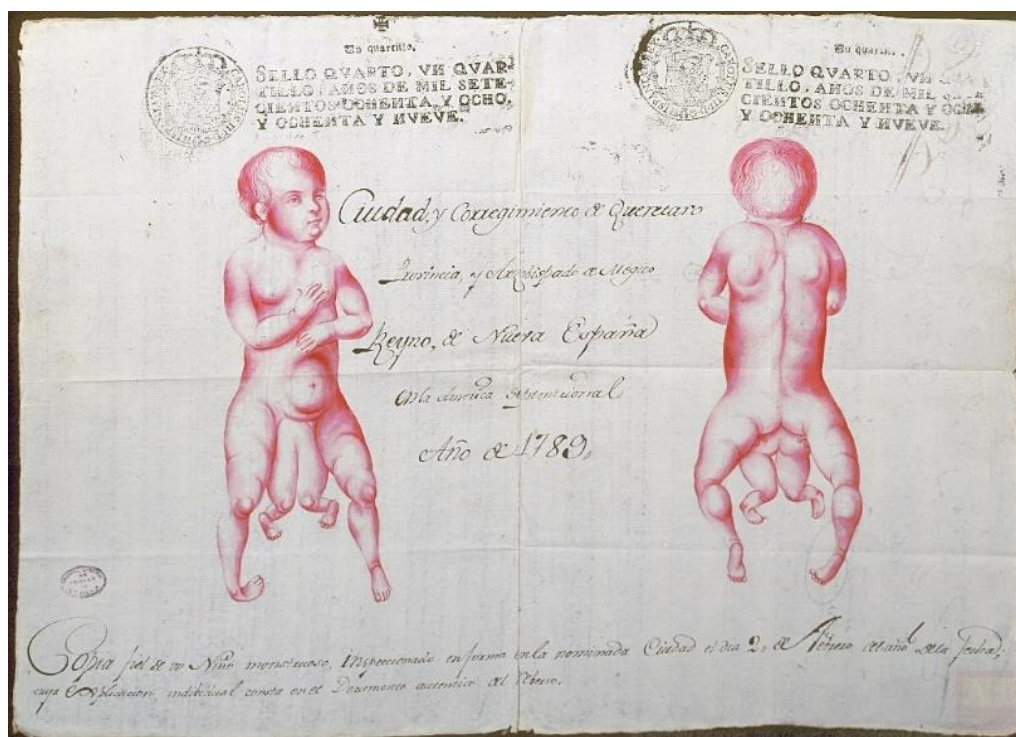 Un quartillo.
SELLO QVARTO, VN QVAR-
TILLO, AÑOS DE MIL SETE-
CIENTOS OCHENTA, Y OCHO,
Y OCHENTA Y NUEVE.
Un quarti
SELLO QVARTO, VN
TILLO, AÑOS DE MIL
CIENTOS OCHENTA, Y OCHO
Y OCHENTA Y NUEVE.
Ciudad, y Corregimiento de Queretaro
Provincia, y Arzobispado de Megico
Reyno, de Nueva España
en la America Septentrional
Año de 1789,
Copia fiel de un Niño monstruoso, Inspeccionado en forma en la nominada Ciudad el dia 2, de Febrero del año de la fecha;
cuya Explicacion individual consta en el Documento autentico del